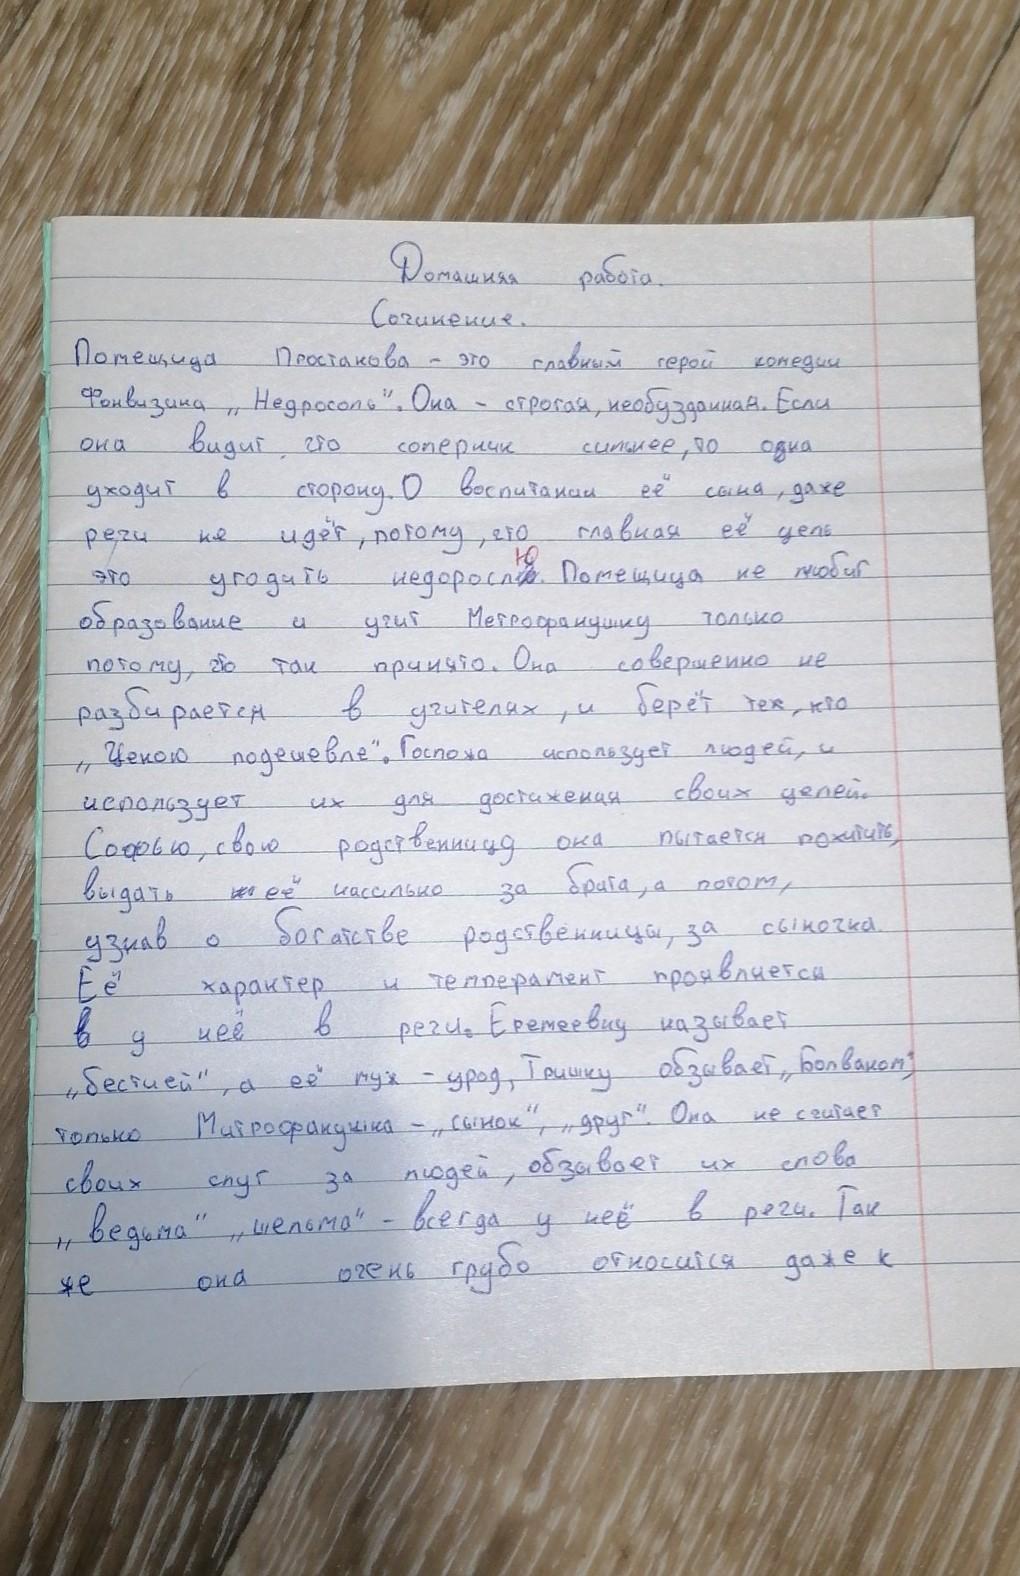 Домашняя работа.
Сочинение.
Помещица Простакова – это главный герой комедии
Фонвизина „Недросоль“. Она – строгая, необузданная. Если
она видит, что соперник сильнее, то одна
уходит в сторону. О воспитании её сына, даже
речи не идёт, потому, что главная её цель
это угодить недорослю. Помещица не любит
образование и учит Метрофанушку только
потому, что так принято. Она совершенно не
разбирается в учителях, и берёт тех, кто
„Ценою подешевле“. Госпожа использует людей, и
использует их для достижения своих целей.
Софью, свою родственницу она пытается похитить,
выдать её насильно за брата, а потом,
узнав о богатстве родственницы, за сыночка.
Её характер и темперамент проявляется
у неё в речи. Еремеевну называет
„бестией“, а её муж – урод, Тришку обзывает „Болваном“,
только Митрофанушка – „сынок“, „друг“. Она не считает
своих слуг за людей, обзывает их слова
„ведьма“ „шельма“ – всегда у неё в речи. Так
же она очень грубо относится даже к